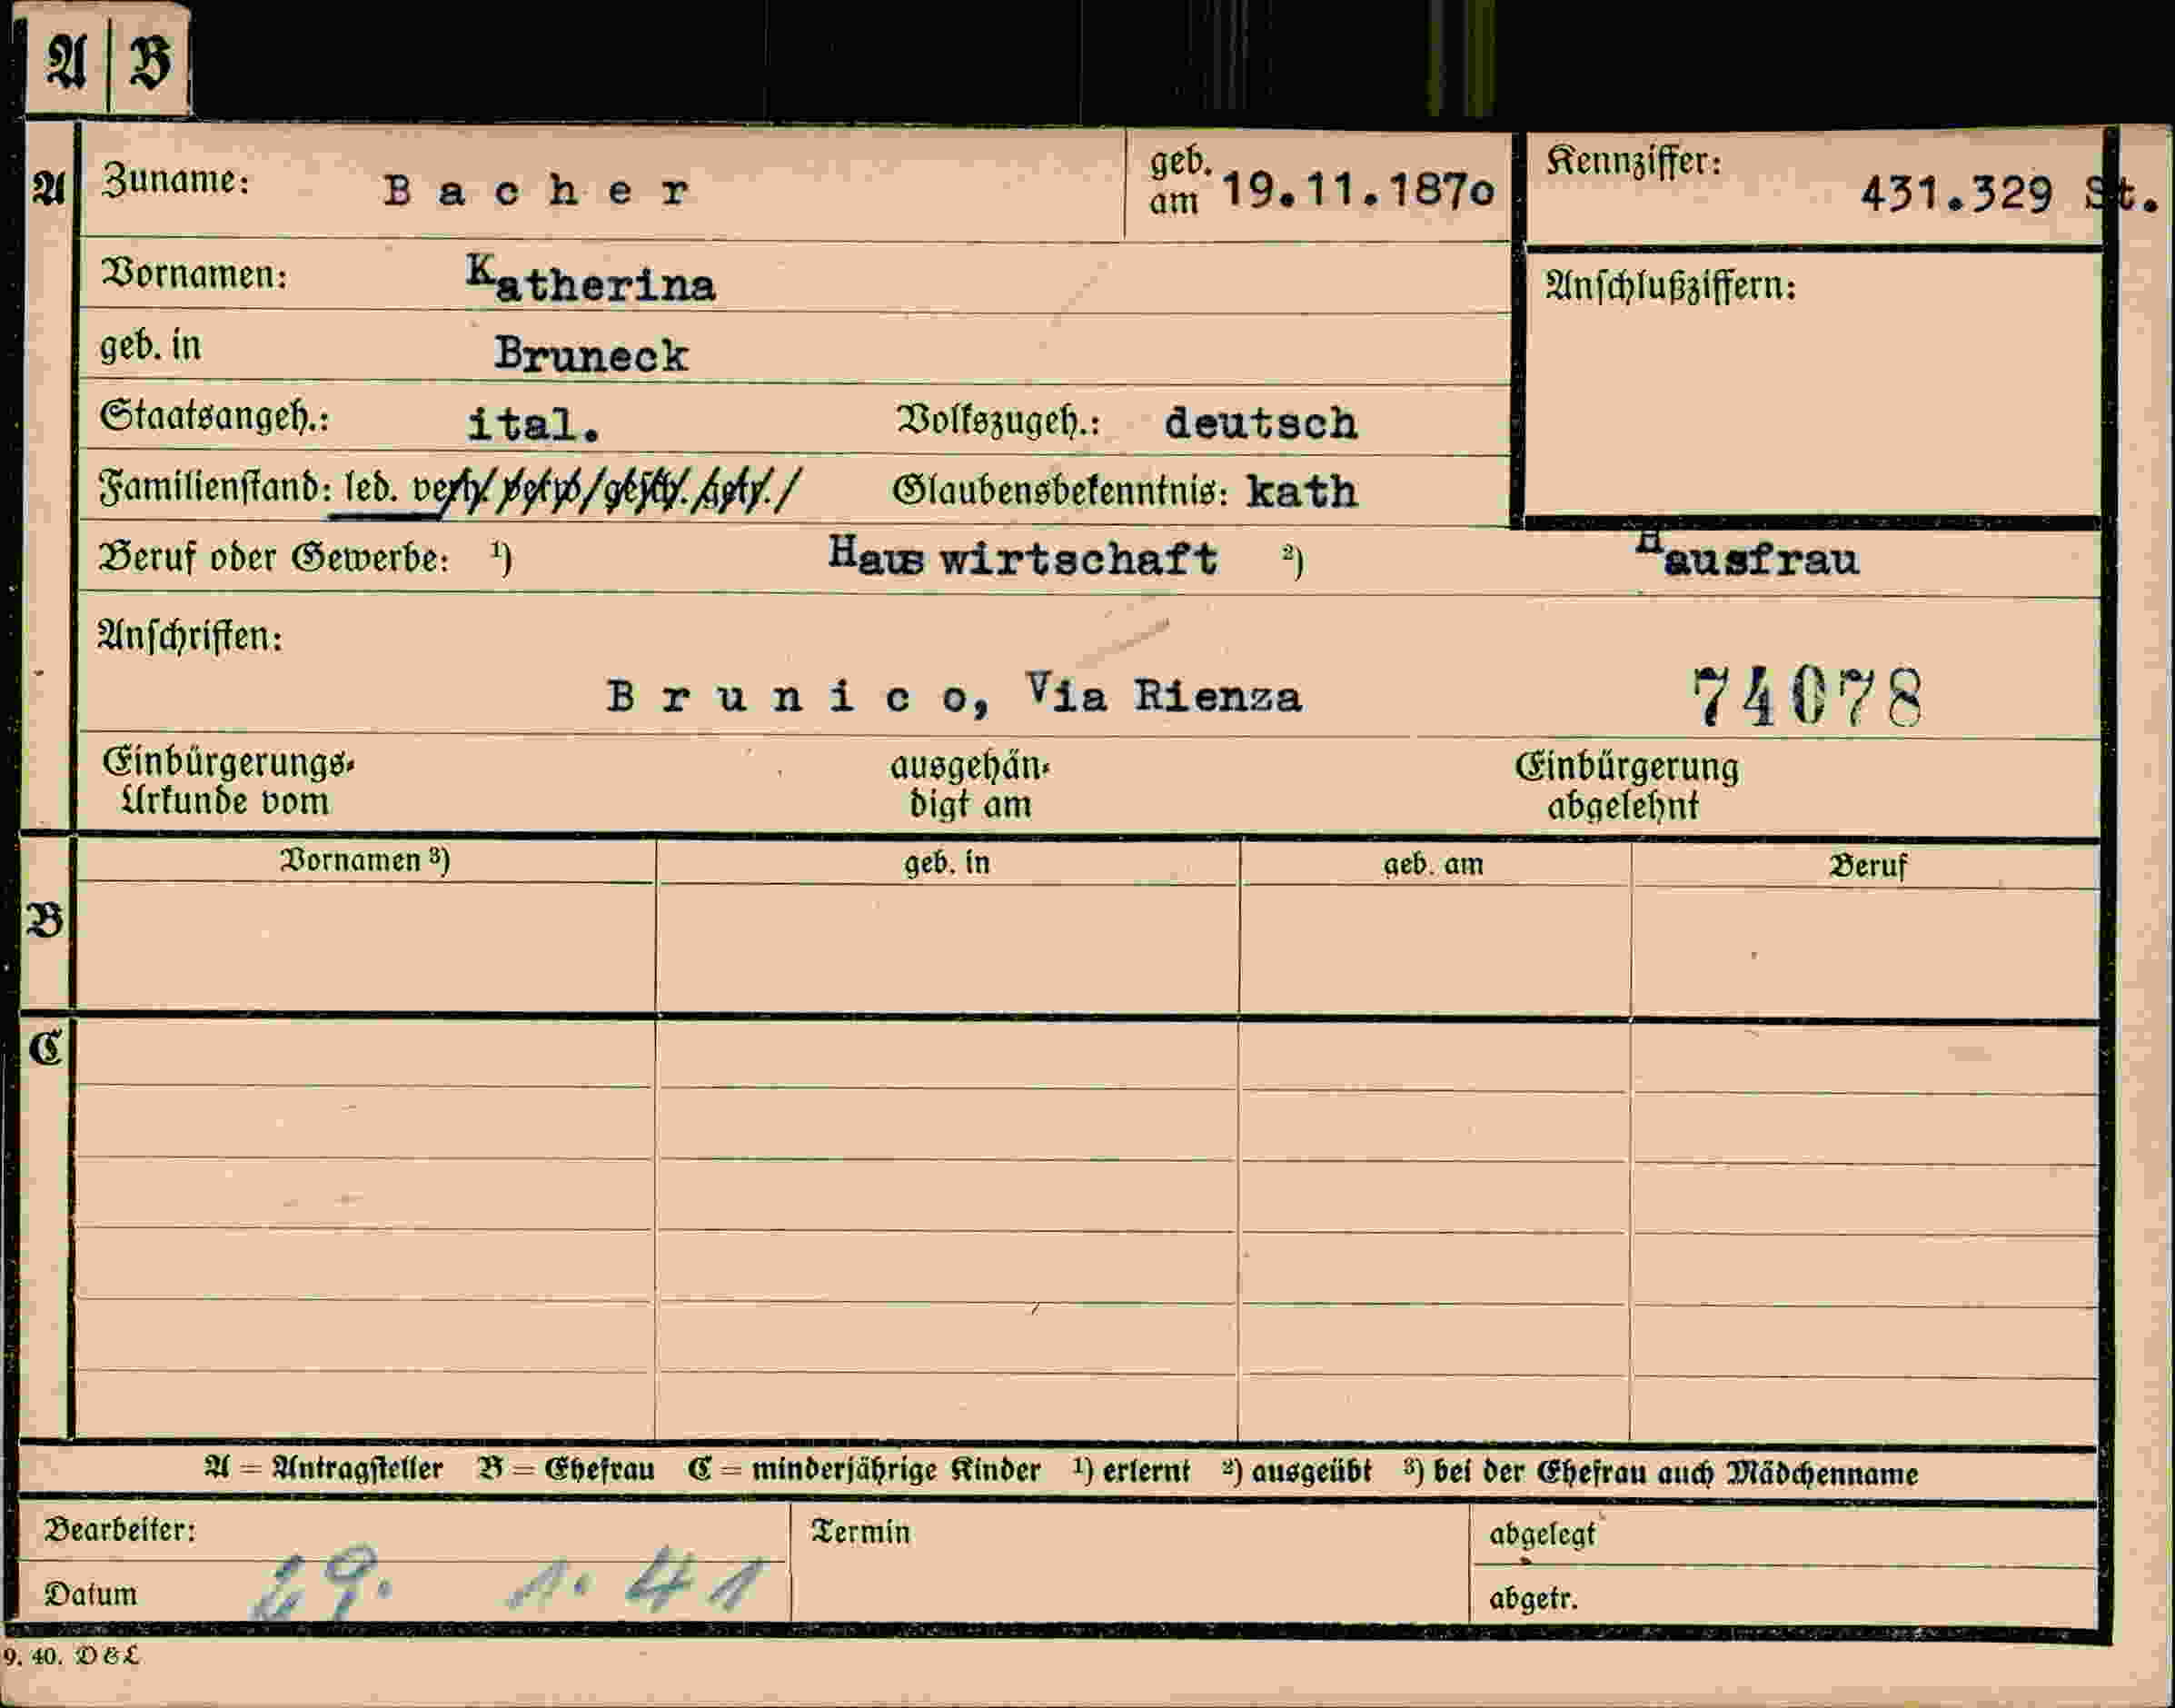 A B
A Zuname: Bacher geb. am 19.11.1870 Kennziffer: 431.329 St.
Vornamen: Katherina Anschlußziffern:
geb. in Bruneck
Staatsangeh.: ital. Volkszugeh.: deutsch
Familienstand: led. verh. verw. gesch. getr. Glaubensbekenntnis: kath
Beruf oder Gewerbe: ¹) Hauswirtschaft ²) Hausfrau
Anschriften:
Brunico, Via Rienza 74078
Einbürgerungs- ausgehän- Einbürgerung
Urkunde vom digt am abgelehnt
Vornamen ³) geb. in geb. am Beruf
B
C
A = Antragsteller B = Ehefrau C = minderjährige Kinder ¹) erlernt ²) ausgeübt ³) bei der Ehefrau auch Mädchenname
Bearbeiter: Termin abgelegt
Datum 29. 1. 41 abgetr.
9. 40. D & L